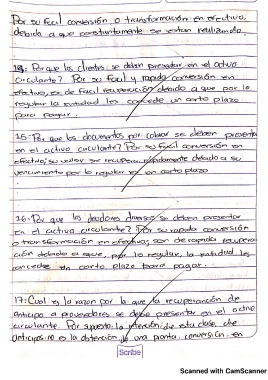 Por su facil conversión o transformación en efectivo,
debido a que constantemente se estan realizando.
14: Porque los clientes se deben presentar en el activo
circulante? Por su facil y rapida conversión en
efectivo, es de facil recuperación debido a que por lo
regular la entidad les concede un corto plazo
para pagar.
15: Por que los documentos por cobrar se deben presentar
en el activo circulante? Por su facil conversión en
efectivo, su valor se recupera rápidamente debido a su
vencimiento por lo regular es un corto plazo
16: Por que los deudores diversos se deben presentar
en el activo circulante? Por su rapida conversión
o transformación en efectivo, son de rapida recupera
ción debido a que, por lo regular, la entidad les
concede un corto plazo para pagar.
17: Cual es la razon por la que la recuperación de
anticipo a proveedores se debe presentar en el activo
circulante. Por supuesto la intención de esta clase de
anticipos no es la obtención de una pronta conversión en
Scribe
Scanned with CamScanner